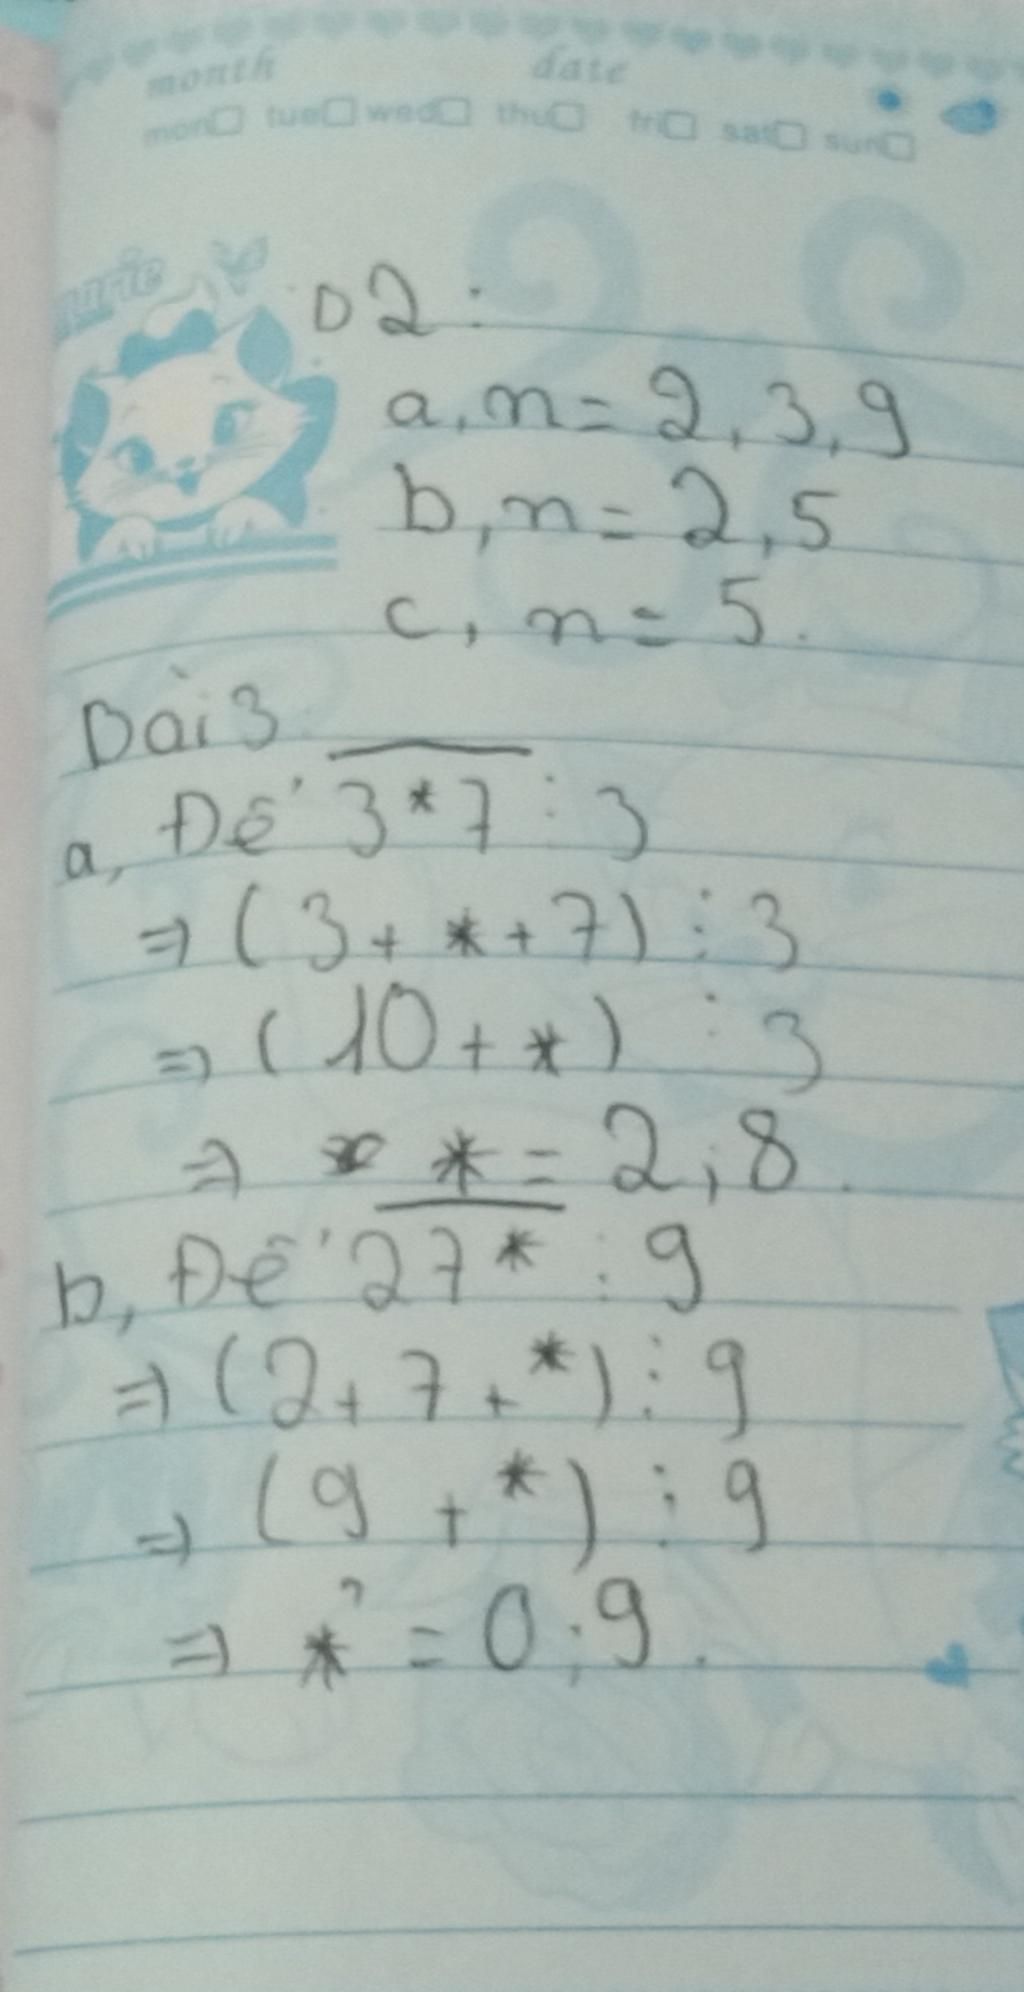 month date
mon tue wed thu fri sat sun
D2:
a, n = 2, 3, 9
b, n = 2, 5
c, n = 5.
Bài 3
a, Để 3*7 ⋮ 3
=> (3 + * + 7) ⋮ 3
=> (10 + *) ⋮ 3
=> * = 2; 8.
b, Để 27* ⋮ 9
=> (2 + 7 + *) ⋮ 9
=> (9 + *) ⋮ 9
=> * = 0; 9.